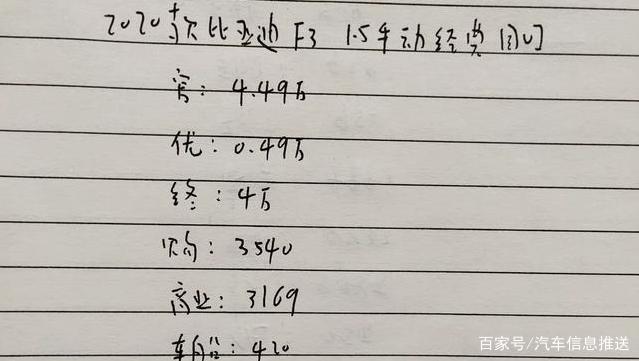 2020款比亚迪F3 1.5手动经典型
官：4.49万
优：0.49万
终：4万
购：3540
商业：3169
车船：420
百家号/汽车信息推送